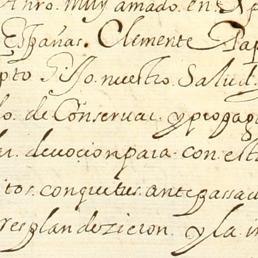 muy amado. en. Xp
Españas. Clemente Pap
pto. Hijo. nuestro. Salud.
de Conseruar. y propag
devocion para. con. est
itos. con que tus. antepassa
resplandezieron. y la in